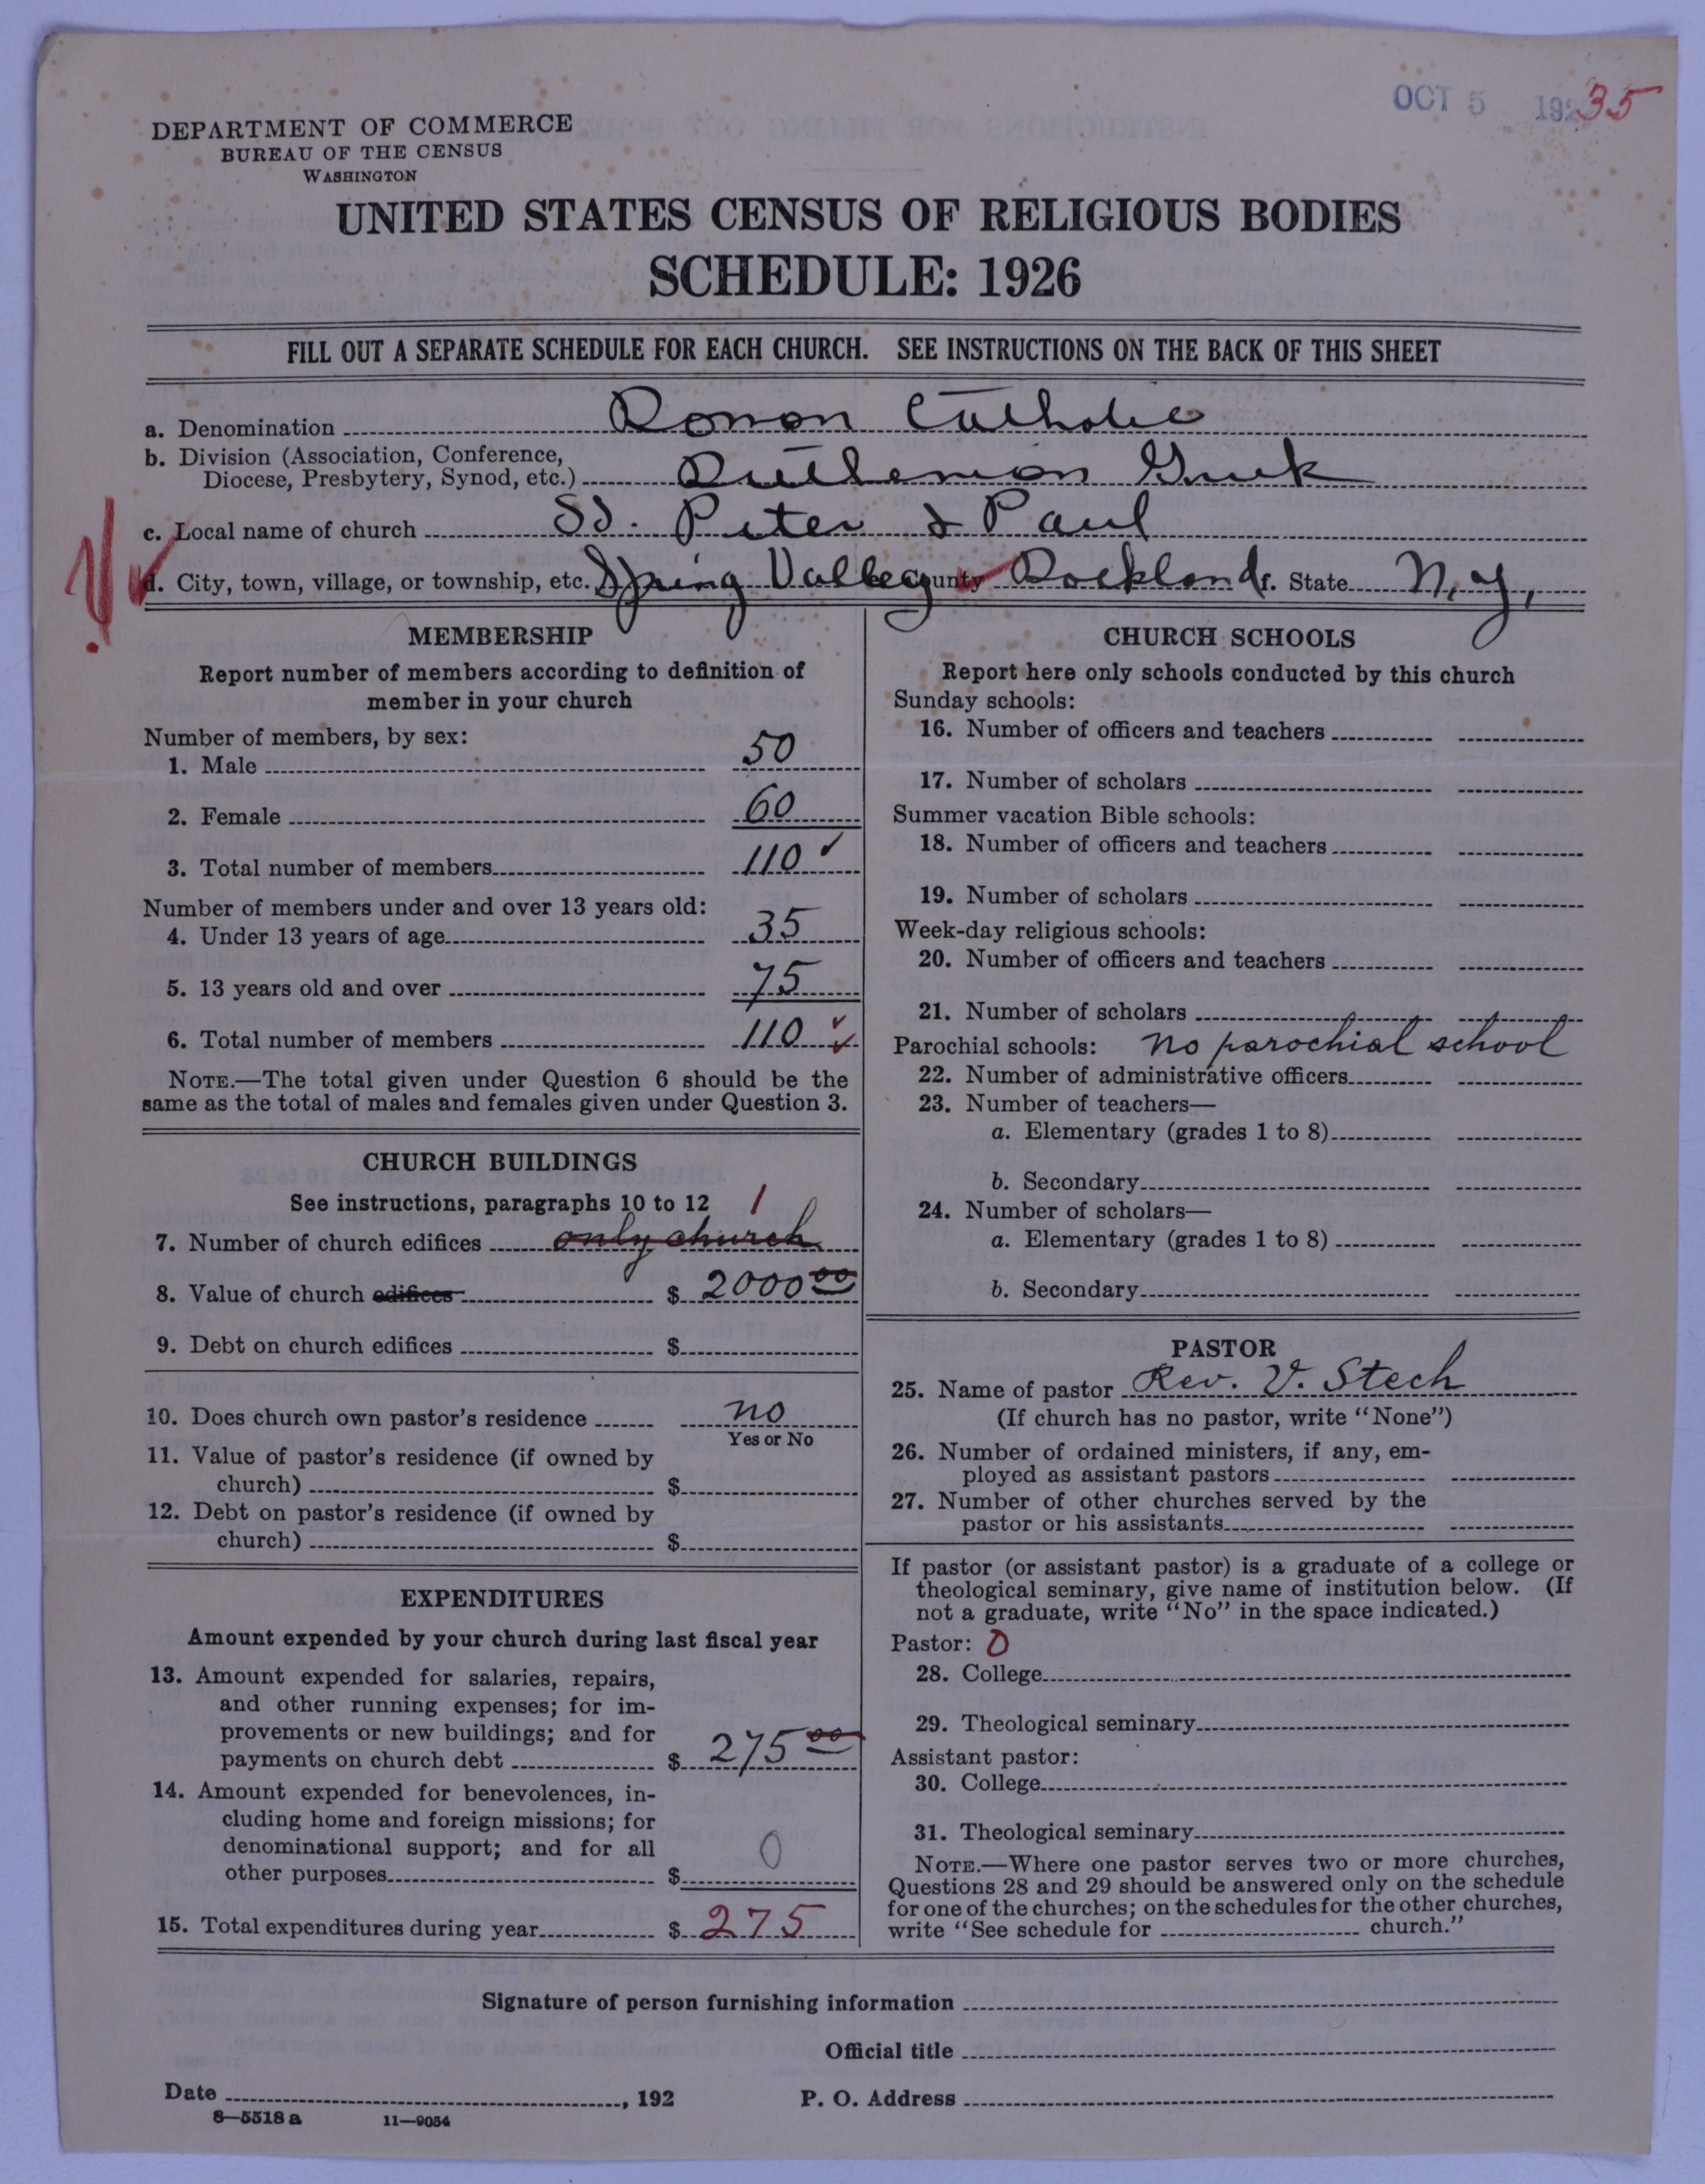 OCT 5 192 35
DEPARTMENT OF COMMERCE
BUREAU OF THE CENSUS
WASHINGTON
UNITED STATES CENSUS OF RELIGIOUS BODIES
SCHEDULE: 1926
FILL OUT A SEPARATE SCHEDULE FOR EACH CHURCH. SEE INSTRUCTIONS ON THE BACK OF THIS SHEET
a. Denomination Roman Catholic
b. Division (Association, Conference,
Diocese, Presbytery, Synod, etc.) Ruthenian Greek
c. Local name of church SS. Peter & Paul
d. City, town, village, or township, etc. Spring Valley County Rockland f. State N.Y.
MEMBERSHIP
Report number of members according to definition of
member in your church
Number of members, by sex:
1. Male 50
2. Female 60
3. Total number of members 110 ✓
Number of members under and over 13 years old:
4. Under 13 years of age 35
5. 13 years old and over 75
6. Total number of members 110 ✓
NOTE.—The total given under Question 6 should be the
same as the total of males and females given under Question 3.
CHURCH BUILDINGS
See instructions, paragraphs 10 to 12 1
7. Number of church edifices only church
8. Value of church edifices $ 2000 00
9. Debt on church edifices $
10. Does church own pastor's residence no
Yes or No
11. Value of pastor's residence (if owned by
church) $
12. Debt on pastor's residence (if owned by
church) $
EXPENDITURES
Amount expended by your church during last fiscal year
13. Amount expended for salaries, repairs,
and other running expenses; for im-
provements or new buildings; and for
payments on church debt $ 275 00
14. Amount expended for benevolences, in-
cluding home and foreign missions; for
denominational support; and for all
other purposes $ 0
15. Total expenditures during year $ 275
CHURCH SCHOOLS
Report here only schools conducted by this church
Sunday schools:
16. Number of officers and teachers
17. Number of scholars
Summer vacation Bible schools:
18. Number of officers and teachers
19. Number of scholars
Week-day religious schools:
20. Number of officers and teachers
21. Number of scholars
Parochial schools: no parochial school
22. Number of administrative officers
23. Number of teachers—
a. Elementary (grades 1 to 8)
b. Secondary
24. Number of scholars—
a. Elementary (grades 1 to 8)
b. Secondary
PASTOR
25. Name of pastor Rev. V. Stech
(If church has no pastor, write "None")
26. Number of ordained ministers, if any, em-
ployed as assistant pastors
27. Number of other churches served by the
pastor or his assistants
If pastor (or assistant pastor) is a graduate of a college or
theological seminary, give name of institution below. (If
not a graduate, write "No" in the space indicated.)
Pastor: 0
28. College
29. Theological seminary
Assistant pastor:
30. College
31. Theological seminary
NOTE.—Where one pastor serves two or more churches,
Questions 28 and 29 should be answered only on the schedule
for one of the churches; on the schedules for the other churches,
write "See schedule for church."
Signature of person furnishing information
Official title
Date , 192 P. O. Address
8—5518 a 11—9054